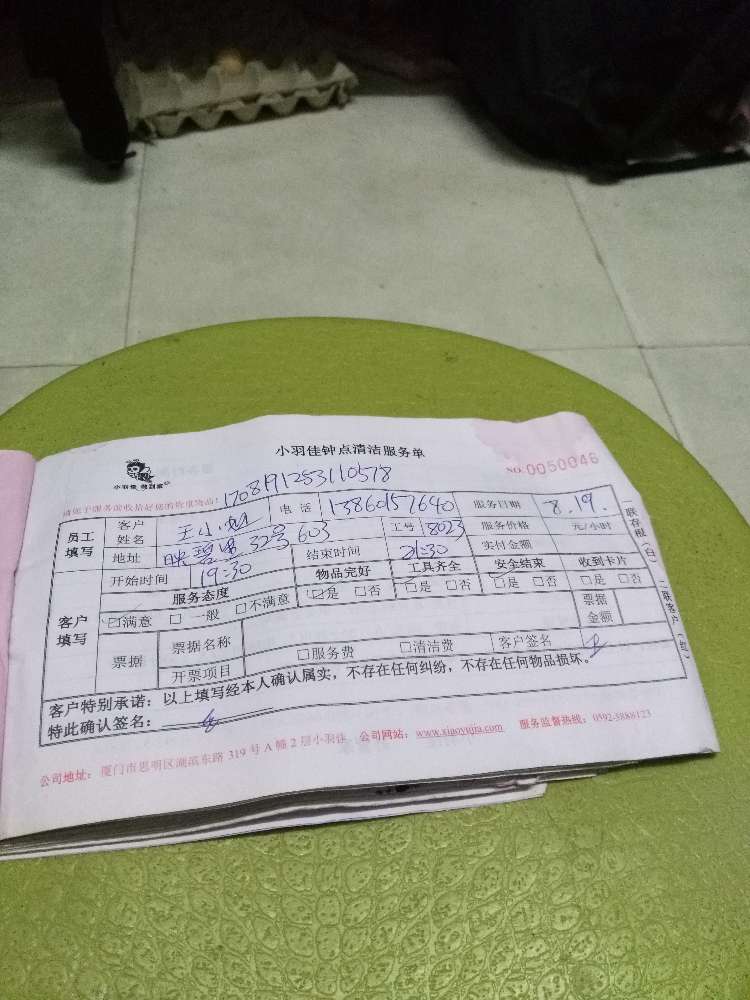 小羽佳钟点清洁服务单
小羽佳 做到家
NO. 0050046
请您于服务前收拾好您的贵重物品! 1708191253110578
员工填写 客户姓名 王小 电话 13860157640 服务日期 8.19.
地址 映碧里32号603 工号 8023 服务价格 元/小时
开始时间 19:30 结束时间 21:30 实付金额
客户填写 服务态度 物品完好 工具齐全 安全结束 收到卡片
☑满意 □一般 □不满意 ☑是 □否 ☑是 □否 ☑是 □否 □是 □否
票据 票据名称 票据金额
开票项目 □服务费 □清洁费 客户签名
客户特别承诺：以上填写经本人确认属实，不存在任何纠纷，不存在任何物品损坏。
特此确认签名：
公司地址：厦门市思明区湖滨东路 319 号 A 幢 2 层小羽佳 公司网站：www.xiaoyujia.com 服务监督热线：0592-5888123
一联存根（白） 二联客户（红）